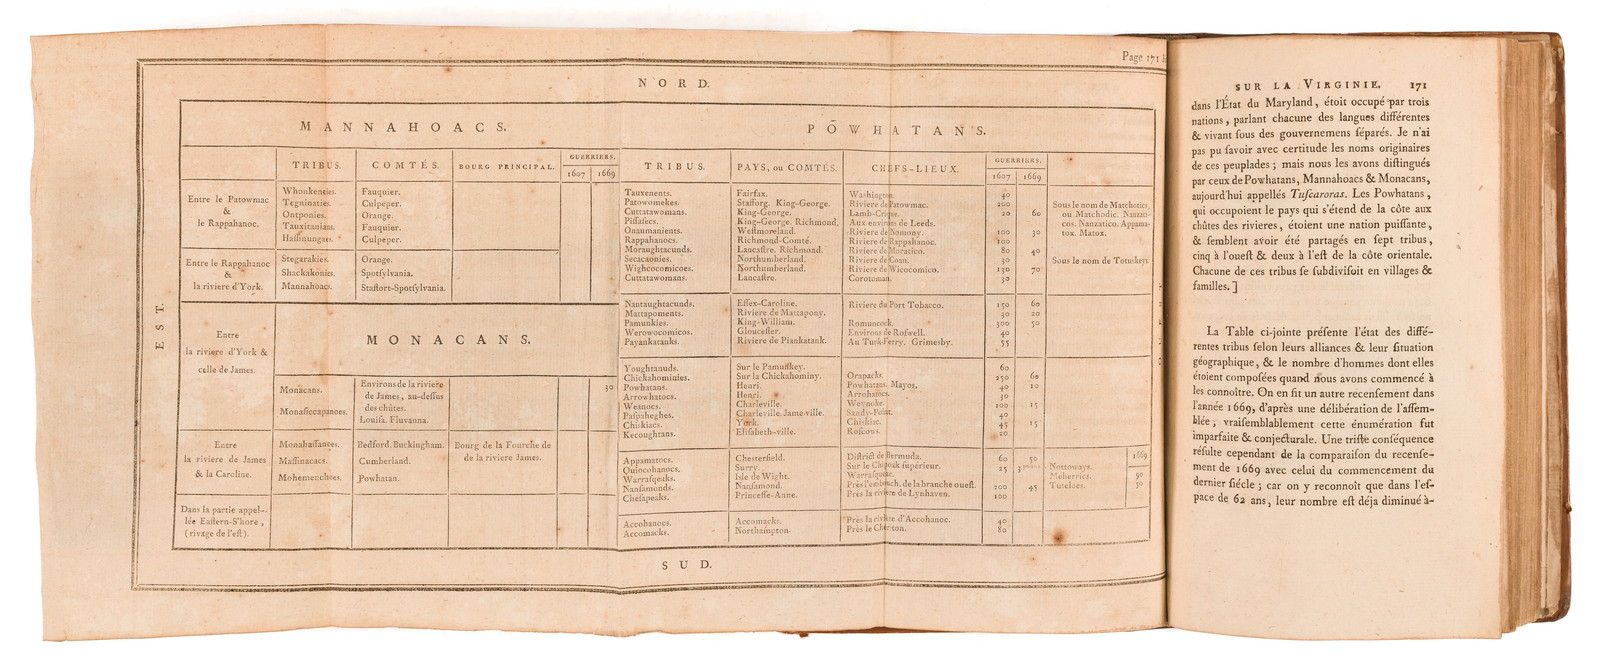 Page 171
NORD.
EST.
MANNAHOACS.
TRIBUS. COMTÉS. BOURG PRINCIPAL. GUERRIERS.
1607 1669
Entre le Patowmac
&
le Rappahanoc.
Whonkenties. Fauquier.
Tegninaties. Culpeper.
Ontponies. Orange.
Tauxitanians. Fauquier.
Hassinungaes. Culpeper.
Entre le Rappahanoc
&
la riviere d'York.
Stegarakies. Orange.
Shackakonies. Spotsylvania.
Mannahoacs. Staffort-Spotsylvania.
MONACANS.
Entre
la riviere d'York &
celle de James.
Monacans. Environs de la riviere 30
de James, au-dessus
des chûtes.
Monasiccapanoes. Louisa. Fluvanna.
Entre
la riviere de James
& la Caroline.
Monahassanoes. Bedford. Buckingham. Bourg de la Fourche de
de la riviere James.
Massinacacs. Cumberland.
Mohemenchoes. Powhatan.
Dans la partie appel-
lée Eastern-S'hore,
(rivage de l'est).
PŌWHATANS.
TRIBUS. PAYS, ou COMTÉS. CHEFS-LIEUX. GUERRIERS.
1607 1669
Tauxenents. Fairfax. Washington. 40
Patowomekes. Stafforg. King-George. Riviere de Patowmac. 200
Cuttatawomans. King-George. Lamb-Crique. 20 60
Pissasecs. King-George. Richmond. Aux environs de Leeds.
Onaumanients. Westmoreland. Riviere de Nomony. 100 30
Rappahanocs. Richmond-Comté. Riviere de Rappahanoc. 100
Moraughtacunds. Lancastre. Richmond. Riviere de Moratico. 80 40
Secacaonies. Northumberland. Riviere de Coan. 30
Wighcocomicoes. Northumberland. Riviere de Wicocomico. 130 70
Cuttatawomans. Lancastre. Corotoman. 30
Sous le nom de Matchotics,
ou Matchodic. Nanzati-
cos. Nanzatico. Appama-
tox. Matox.
Sous le nom de Totuskeys.
Nantaughtacunds. Essex-Caroline. Riviere du Port Tobacco. 150 60
Mattapoments. Riviere de Mattapony. 30 20
Pamunkies. King-William. Romuncock. 300 50
Werowocomicos. Gloucester. Environs de Rofwell. 40
Payankatanks. Riviere de Piankatank. Au Turk-Ferry. Grimesby. 55
Youghtanuds. Sur le Pamunkey. 60
Chickahominies. Sur la Chickahominy. Orapacks. 250 60
Powhatans. Henri. Powhatans. Mayos. 40 10
Arrowhatocs. Henri. Arrohatocs. 30
Weanocs. Charleville. Weynoke. 100 15
Paspaheghes. Charleville. Jame-ville. Sandy-Point. 40
Chiskiacs. York. Chiskiac. 45 15
Kecoughtans. Elisabeth-ville. Roscows. 20
Appamatocs. Chesterfield. District de Bermuda. 60 50
Quiocohanocs. Surry. Sur le Chipoak supérieur. 25
Warrasqeaks. Isle de Wight. Warrasqueac.
Nansamonds. Nansamond. Près l'embouch. de la branche ouest. 200 45
Chesapeaks. Princesse-Anne. Près la riviere de Lynhaven. 100
1669
Nottoways.
Meherrics. 90
Tuteloes. 50
Accohanocs. Accomacks. Près la riviere d'Accohanoc. 40
Accomacks. Northampton. Près le Cheriton. 80
SUD.
SUR LA VIRGINIE. 171
dans l'État du Maryland, étoit occupé par trois
nations, parlant chacune des langues différentes
& vivant sous des gouvernemens séparés. Je n'ai
pas pu savoir avec certitude les noms originaires
de ces peuplades; mais nous les avons distingués
par ceux de Powhatans, Mannahoacs & Monacans,
aujourd'hui appellés Tuscaroras. Les Powhatans,
qui occupoient le pays qui s'étend de la côte aux
chûtes des rivieres, étoient une nation puissante,
& semblent avoir été partagés en sept tribus,
cinq à l'ouest & deux à l'est de la côte orientale.
Chacune de ces tribus se subdivisoit en villages &
familles.]
La Table ci-jointe présente l'état des diffé-
rentes tribus selon leurs alliances & leur situation
géographique, & le nombre d'hommes dont elles
étoient composées quand nous avons commencé à
les connoître. On en fit un autre recensement dans
l'année 1669, d'après une délibération de l'assem-
blée; vraisemblablement cette énumération fut
imparfaite & conjecturale. Une triste conséquence
résulte cependant de la comparaison du recense-
ment de 1669 avec celui du commencement du
dernier siécle; car on y reconnoît que dans l'es-
pace de 62 ans, leur nombre est déja diminué à-